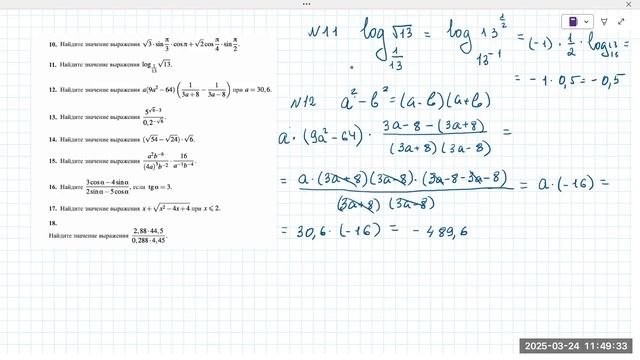 10. Найдите значение выражения √3 · sin π/3 · cos π + √2 cos π/4 · sin π/2.
11. Найдите значение выражения log_{1/13} √13.
12. Найдите значение выражения a(9a² − 64) (1/(3a + 8) − 1/(3a − 8)) при a = 30,6.
13. Найдите значение выражения
14. Найдите значение выражения (√54 − √24) · √6.
15. Найдите значение выражения a²b⁻⁶/((4a)³b⁻²) · 16/(a⁻³b⁻⁴).
16. Найдите значение выражения (3cos α − 4sin α)/(2sin α − 5cos α), если tg α = 3.
17. Найдите значение выражения x + √(x² − 4x + 4) при x ⩽ 2.
18.
Найдите значение выражения (2,88 · 44,5)/(0,288 · 4,45).
N11 log_{1/13} √13 = log_{13⁻¹} 13^{1/2} = (-1) · 1/2 · log₁₃ 13 =
= -1 · 0,5 = -0,5
N12 a² - b² = (a - b)(a + b)
a · (9a² - 64) · (3a - 8 - (3a + 8))/((3a + 8)(3a - 8)) =
= a · (3a + 8)(3a - 8) · (3a - 8 - 3a - 8)/((3a + 8)(3a - 8)) = a · (-16) =
= 30,6 · (-16) = - 489,6
2025-03-24 11:49:33